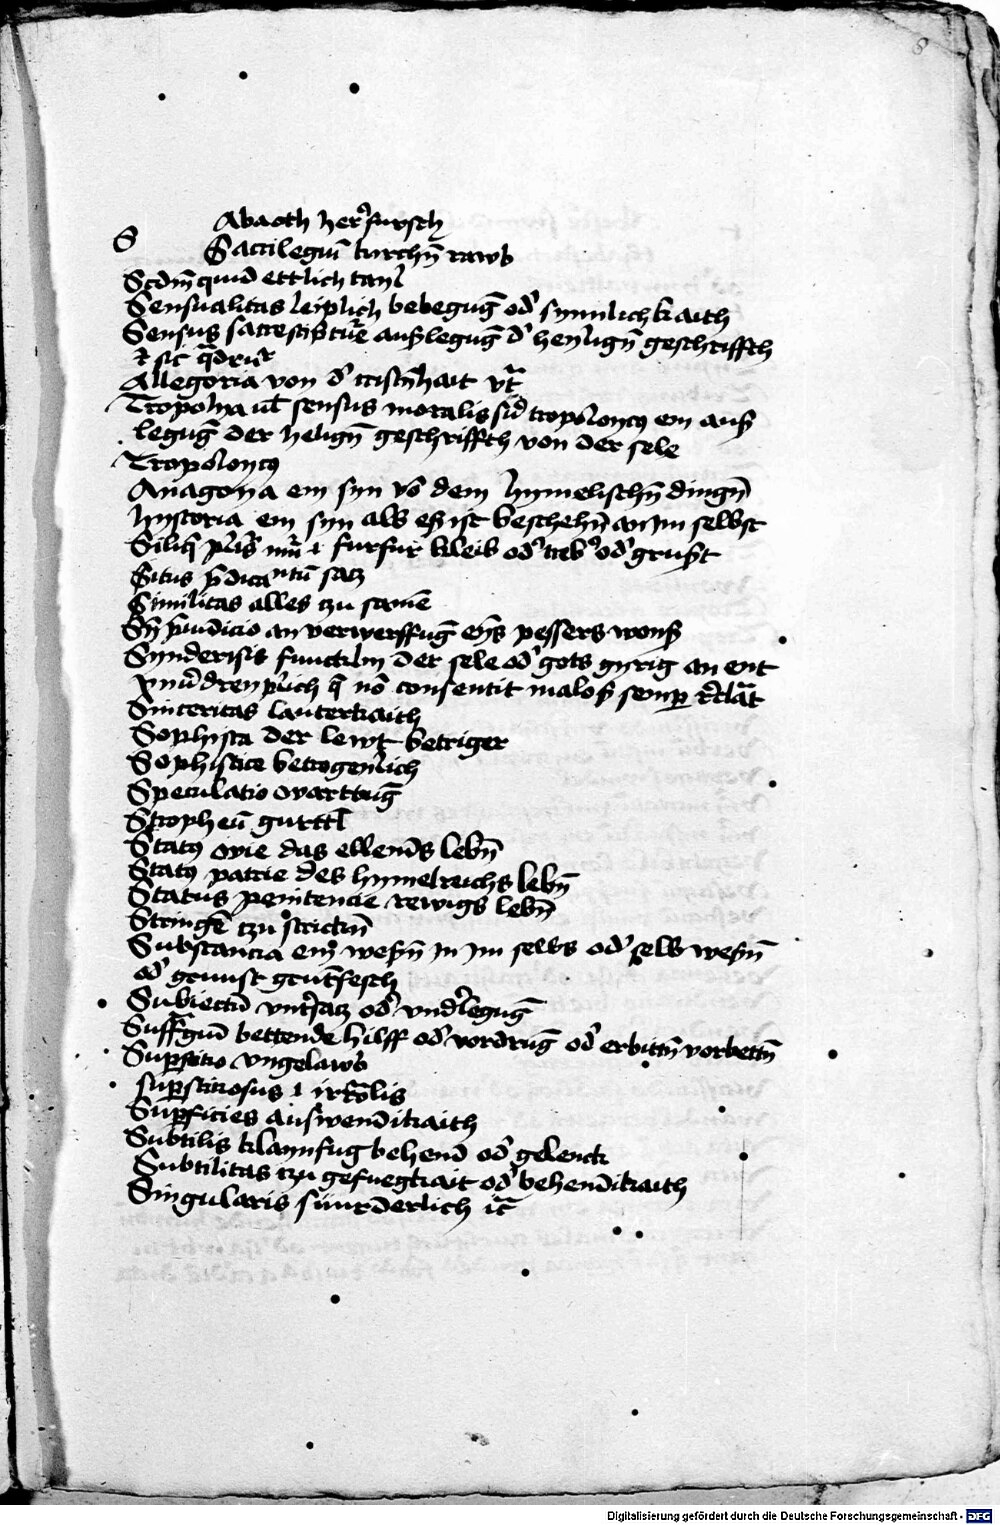 8
S Abaoth her' fursch
Sacrilegiū kirchn̄ rawb
Scdm̄ quid ettlich tayl
Sensualitas leiplich bebeguḡ od' synnlichkaith
Sensus sacre scripture außleguḡ d' heylign̄ geschriffth
Allegoria von d' cristn̄hait
Tropoloya ul̄ sensus moralis sid tropoloycus ein auß
leguḡ der heligń geschriffth von der sele
Tropoloycus
Anagoya ein syn vō dem hymelischn̄ dingn̄
hystoria ein syn als eß ist beschehn̄ an im selbst
furfur kleib od' treb' od' grußt
Situs p̄dicantū satz
Similitas alles tzu samē
Sn̄ p̄iudicio an verwerffuḡ eyns pessers wonß
Sinderisis der sele od' gots gyrig an ent
nō consentit malo semp
Sinceritas lauterkaith
Sophista der lewt betriger
Sophistice betrogenlich
Speculatio wartuḡ
Stropheū gurttl
Status vie das ellends lebn̄
Status patrie des hymelreichs lebn̄
Status penitencie rewigs lebn̄
Stringē tzu strickn̄
Substancia eins weßn̄ in im selbs od' selb weßn̄
od'
Subiectū vnt'satz od' vnd'leguḡ
Suffragiū bettende hilff od' vordruḡ od' erbittn̄ vorbettn̄
Sup̄sticio vngelawb
sup̄sticiosus
Sup̄ficies auswendikaith
Subtilis klannfug behend od' gelenck
Subtilitas tzu gefuegkait od' behendikaith
Singularis sunderlich
Digitalisierung gefördert durch die Deutsche Forschungsgemeinschaft - DFG